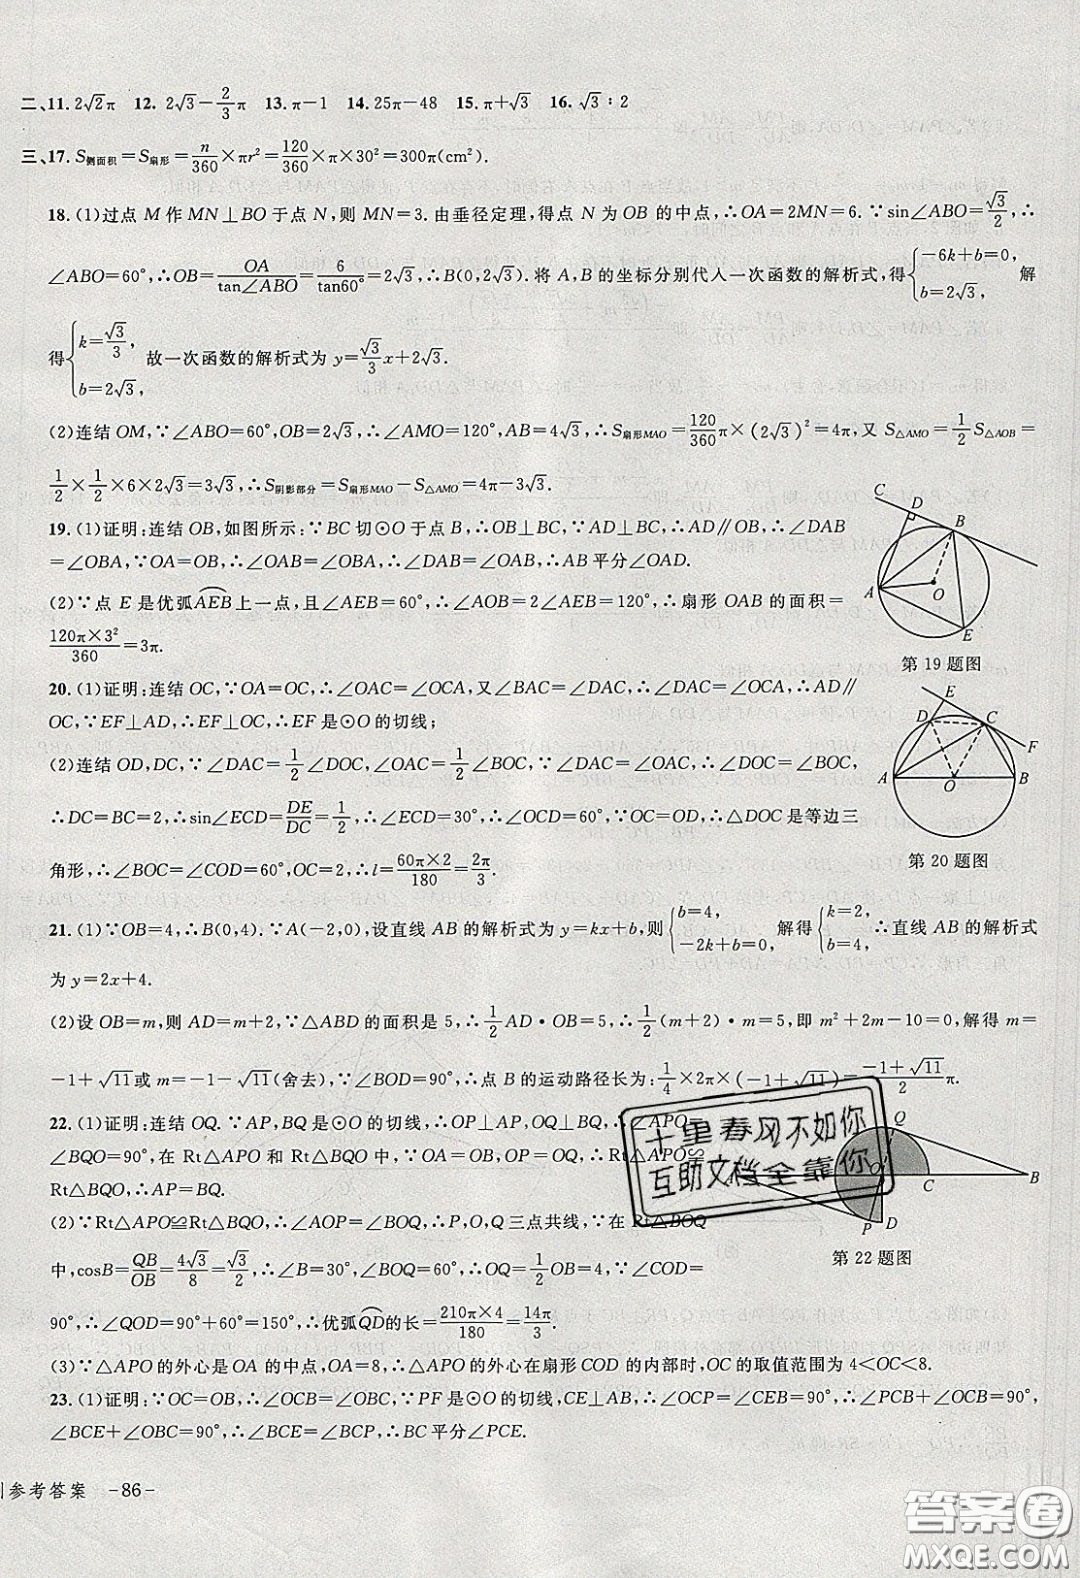 二、11. 2√2π 12. 2√3－2/3π 13. π－1 14. 25π－48 15. π＋√3 16. √3∶2
三、17. S侧面积＝S扇形＝n/360×πr²＝120/360×π×30²＝300π(cm²).
18. (1)过点 M 作 MN⊥BO 于点 N，则 MN＝3. 由垂径定理，得点 N 为 OB 的中点，∴OA＝2MN＝6. ∵sin∠ABO＝√3/2，∴
∠ABO＝60°，∴OB＝OA/tan∠ABO＝6/tan60°＝2√3，∴B(0，2√3). 将 A，B 的坐标分别代入一次函数的解析式，得{－6k＋b＝0，b＝2√3， 解
得{k＝√3/3，b＝2√3， 故一次函数的解析式为 y＝√3/3x＋2√3.
(2)连结 OM，∵∠ABO＝60°，OB＝2√3，∴∠AMO＝120°，AB＝4√3，∴S扇形MAO＝120/360π×(2√3)²＝4π，又 S△AMO＝1/2S△AOB＝
1/2×1/2×6×2√3＝3√3，∴S阴影部分＝S扇形MAO－S△AMO＝4π－3√3.
19. (1)证明：连结 OB，如图所示：∵BC 切⊙O 于点 B，∴OB⊥BC，∵AD⊥BC，∴AD∥OB，∴∠DAB
＝∠OBA，∵OA＝OB，∴∠OAB＝∠OBA，∴∠DAB＝∠OAB，∴AB 平分∠OAD.
(2)∵点 E 是优弧AEB上一点，且∠AEB＝60°，∴∠AOB＝2∠AEB＝120°，∴扇形 OAB 的面积＝
120π×3²/360＝3π.
C D B A O E
第 19 题图
20. (1)证明：连结 OC，∵OA＝OC，∴∠OAC＝∠OCA，又∠BAC＝∠DAC，∴∠DAC＝∠OCA，∴AD∥
OC，∵EF⊥AD，∴EF⊥OC，∴EF 是⊙O 的切线；
(2)连结 OD，DC，∵∠DAC＝1/2∠DOC，∠OAC＝1/2∠BOC，∴∠DAC＝∠OAC，∴∠DOC＝∠BOC，
∴DC＝BC＝2，∴sin∠ECD＝DE/DC＝1/2，∴∠ECD＝30°，∴∠OCD＝60°，∵OC＝OD，∴△DOC 是等边三
角形，∴∠BOC＝∠COD＝60°，OC＝2，∴l＝60π×2/180＝2π/3.
E D C F A O B
第 20 题图
21. (1)∵OB＝4，∴B(0，4). ∵A(－2，0)，设直线 AB 的解析式为 y＝kx＋b，则{b＝4，－2k＋b＝0， 解得{k＝2，b＝4， ∴直线 AB 的解析式
为 y＝2x＋4.
(2)设 OB＝m，则 AD＝m＋2，∵△ABD 的面积是 5，∴1/2AD·OB＝5，∴1/2(m＋2)·m＝5，即 m²＋2m－10＝0，解得 m＝
－1＋√11或 m＝－1－√11(舍去)，∵∠BOD＝90°，∴点 B 的运动路径长为：1/4×2π×(－1＋√11)＝－1＋√11/2π.
22. (1)证明：连结 OQ. ∵AP，BQ 是⊙O 的切线，∴OP⊥AP，OQ⊥BQ，∴∠APO＝
∠BQO＝90°，在 Rt△APO 和 Rt△BQO 中，∵OA＝OB，OP＝OQ，∴Rt△APO≌
Rt△BQO，∴AP＝BQ.
(2)∵Rt△APO≌Rt△BQO，∴∠AOP＝∠BOQ，∴P，O，Q 三点共线，∵在 Rt△BOQ
中，cosB＝QB/OB＝4√3/8＝√3/2，∴∠B＝30°，∠BOQ＝60°，∴OQ＝1/2OB＝4，∵∠COD＝
90°，∴∠QOD＝90°＋60°＝150°，∴优弧QD的长＝210π×4/180＝14π/3.
(3)∵△APO 的外心是 OA 的中点，OA＝8，∴△APO 的外心在扇形 COD 的内部时，OC 的取值范围为 4＜OC＜8.
Q O C B P D
第 22 题图
十里春风不如你
互助文档全靠你
23. (1)证明：∵OC＝OB，∴∠OCB＝∠OBC，∵PF 是⊙O 的切线，CE⊥AB，∴∠OCP＝∠CEB＝90°，∴∠PCB＋∠OCB＝90°，
∠BCE＋∠OBC＝90°，∴∠BCE＝∠BCP，∴BC 平分∠PCE.
参考答案 -86-
答案卷
MXQE.COM